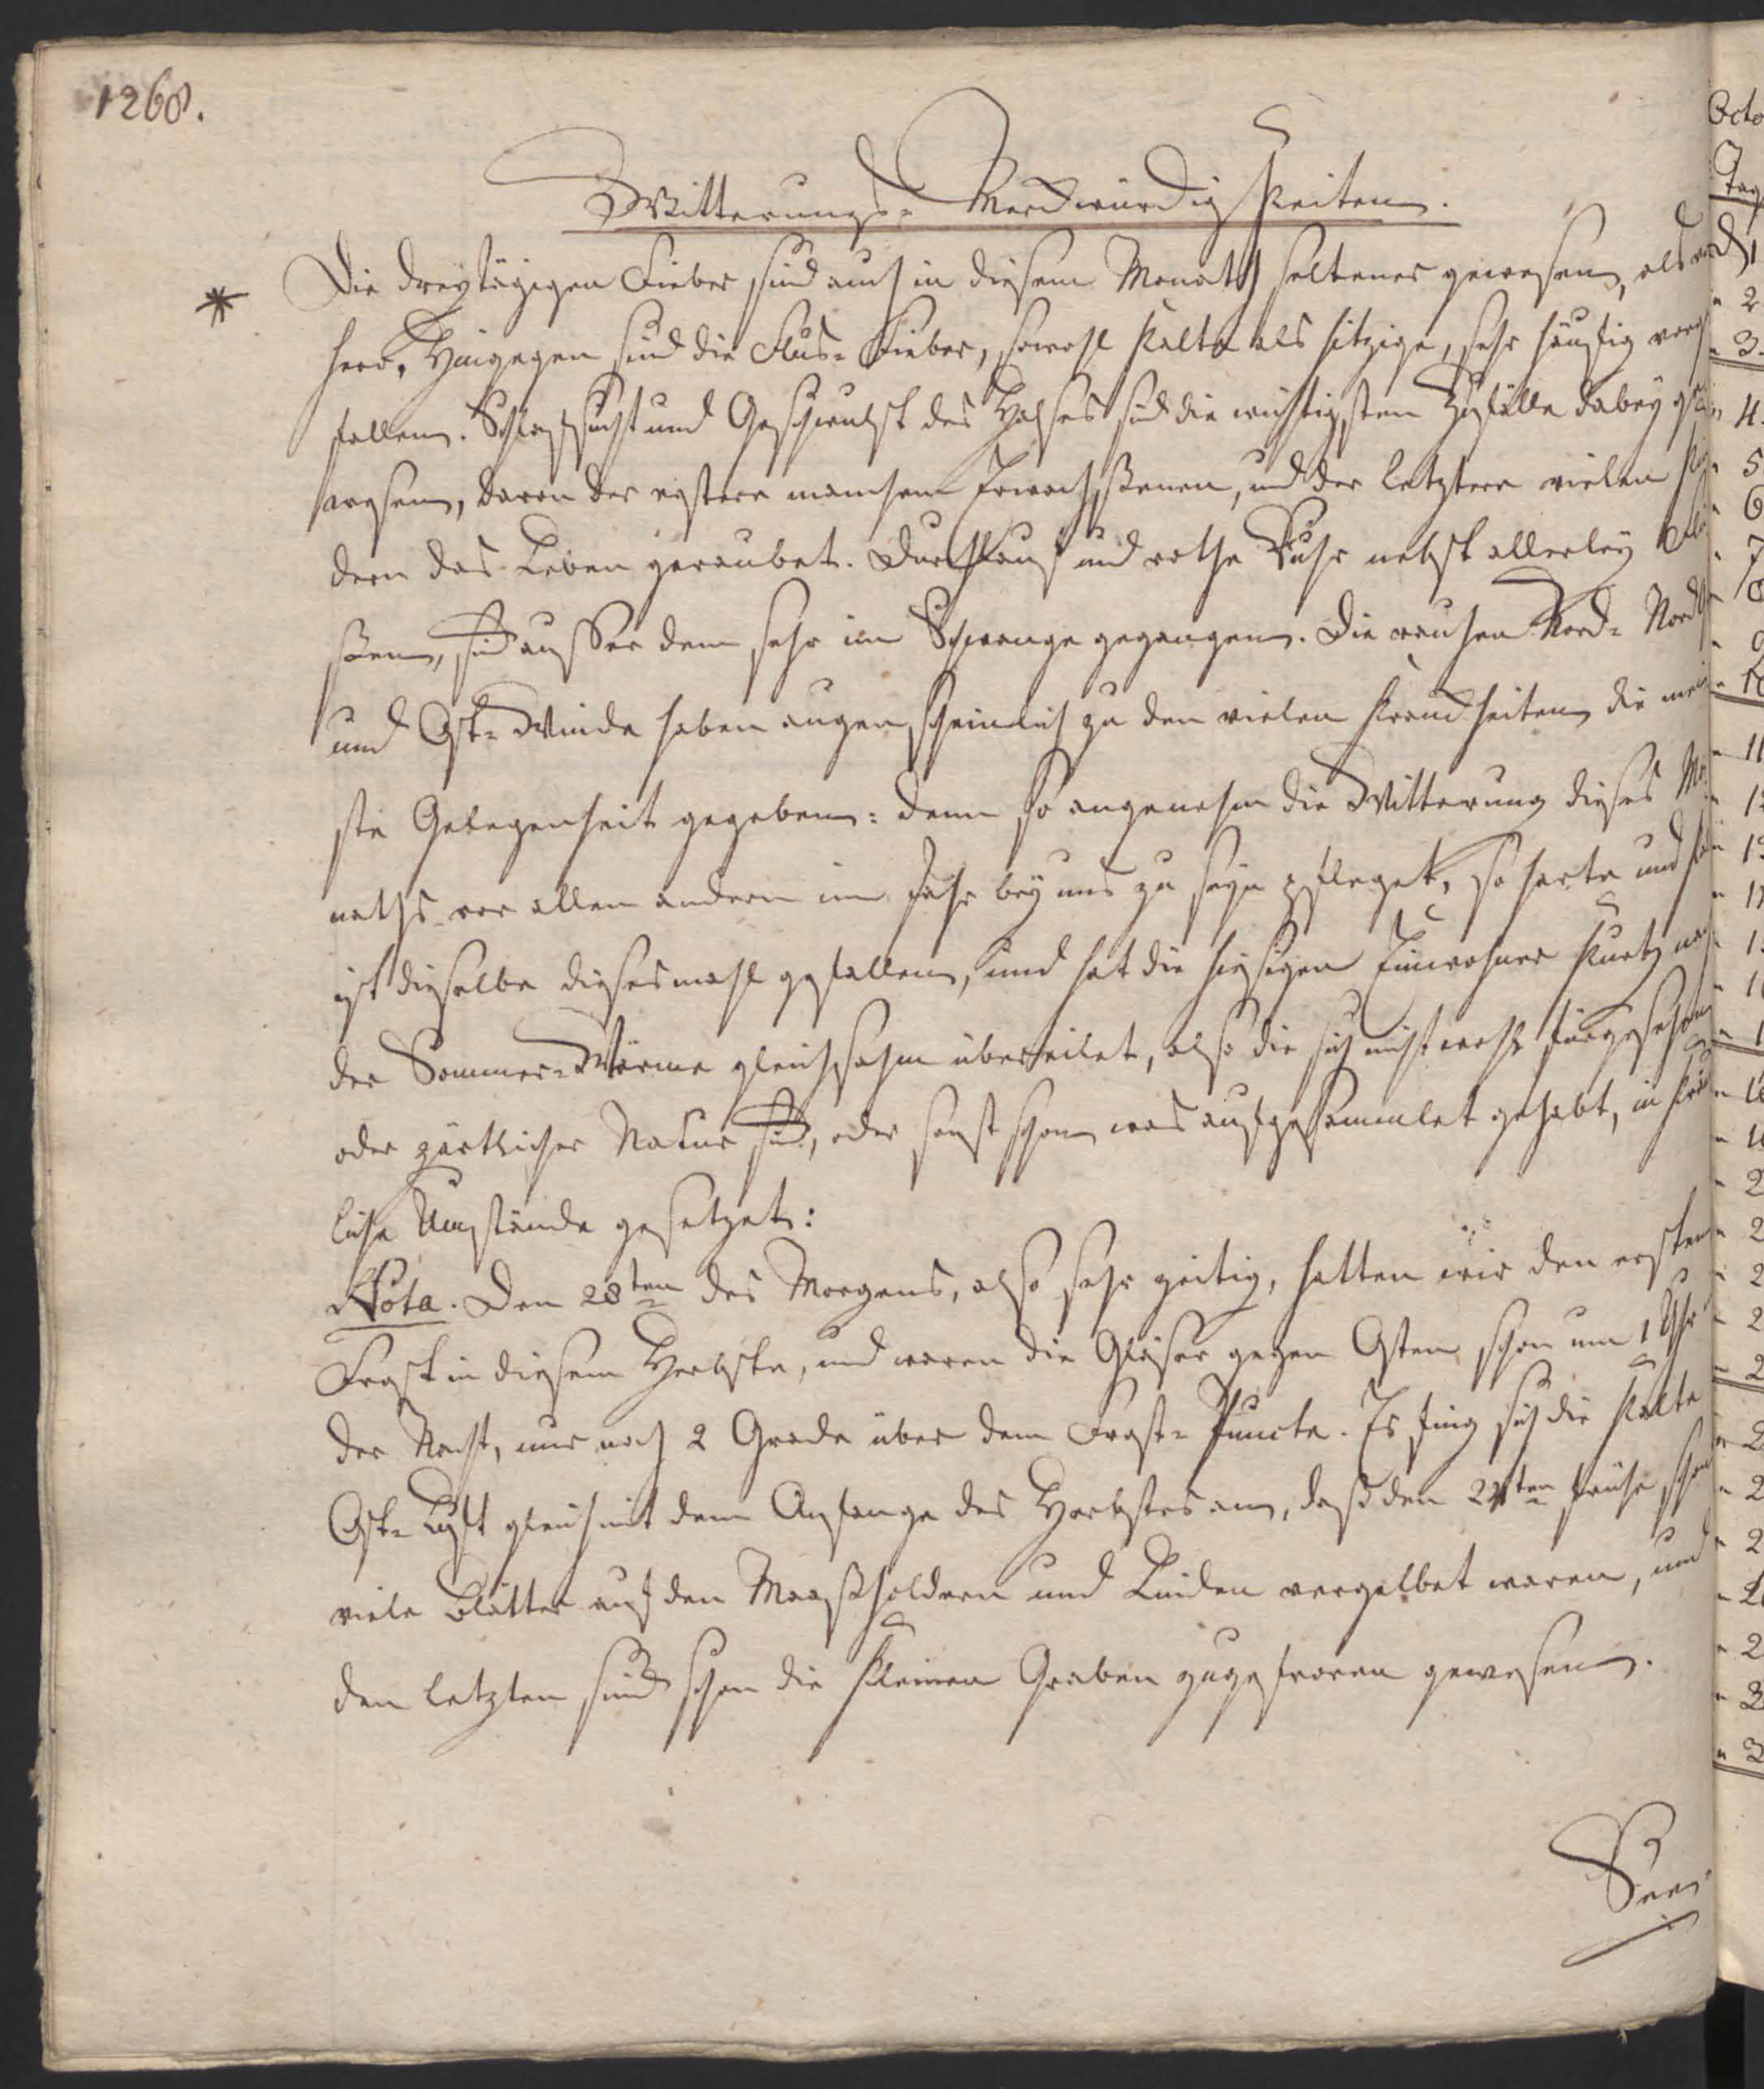 1268.
Witterungs- Merckwürdigkeiten.
* Die dreytägigen Fieber sind auch in diesem Monath seltener gewesen, als
hero. Hingegen sind die Flus- Fieber, sowohl kalte als hitzige, sehr häufig
fallen. Schlafsucht und Geschwulst des Halses sind die wichtigsten Zufälle dabey
wesen, davon der erstere manchem Erwachßenen, und der letztere vielen
dern das Leben geraubet. Durchlauf und rothe Ruhr nebst allerley
ßen, sind ausser dem sehr im Schwange gegangen. Die rauhen Nord- Nord
und Ost- Winde haben augenscheinlich zu den vielen Kranckheiten die
ste Gelegenheit gegeben: denn so angenehm die Witterung dieses Mo
naths vor allen andern im Jahr bey uns zu seyn pfleget, so harte und
ist dieselbe diesesmahl gefallen, und hat die hiesigen Einwohner kurtz
der Sommer- Wärme gleichsahm übereilet, also die sich nicht wohl fürgesehen
oder zärtlicher Natur sind, oder sonst schon was aufgesammlet gehabt, in
liche Umstände gesetzet:
Nota. Den 28ten des Morgens, also sehr zeitig, hatten wir den ersten
Frost in diesem Herbste, und waren die Gläser gegen Osten schon um 1 Uhr
der Nacht, nur noch 2 Grade über dem Frost- Puncte. Es fing sich die kalte
Ost- Luft gleich mit dem Anfange des Herbstes an, daß den 24ten frühe schon
viele Blätter auf den Maaßholdern und Linden vergelbet waren, und
den letzten sind schon die kleinen Graben zugefroren gewesen.
Octo
Tag
1
2
3.
4.
5
6
7
8
9